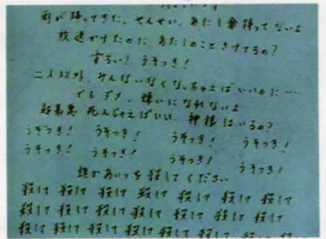 雨が降ってきた。せんせい、あたし傘持ってないよ
放送かけたのに あたしのことすてるの?
ずるい! うそつき!
二人以外、みんないなくなっちゃえばいいのに…
でもダメ、嫌いになれないよ
死んじゃえばいい、神様はいるの?
うそつき! うそつき! うそつき! うそつき!
うそつき! うそつき! うそつき! うそつき!
誰かあいつを殺してください
殺して 殺して 殺して 殺して 殺して 殺して 殺して
殺して 殺して 殺して 殺して 殺して 殺して 殺して
殺して 殺して 殺して 殺して 殺して 殺して